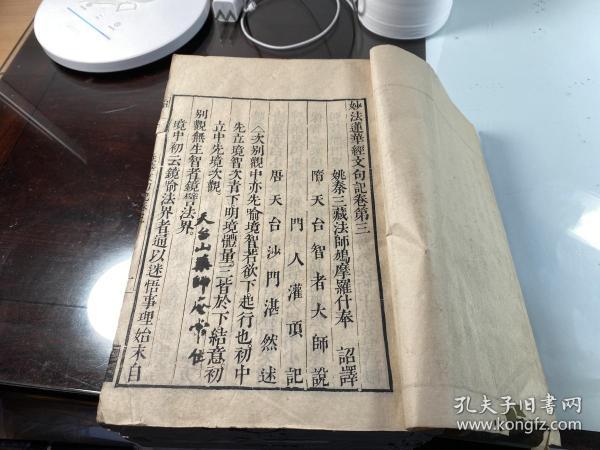 妙法蓮華經文句記卷第三
姚秦三藏法師鳩摩羅什奉 詔譯
隋天台智者大師說
門人灌頂記
唐天台沙門湛然述
次別觀中亦先喻境智者欲下起行也初中
先立境智次青下明境體量三皆於下結意初
立中先境次觀
別觀無生智者鏡譬法界
天台山藥師庵常住
境中初云鏡喻法界者通以迷悟事理始末自
孔夫子旧书网
www.kongfz.com